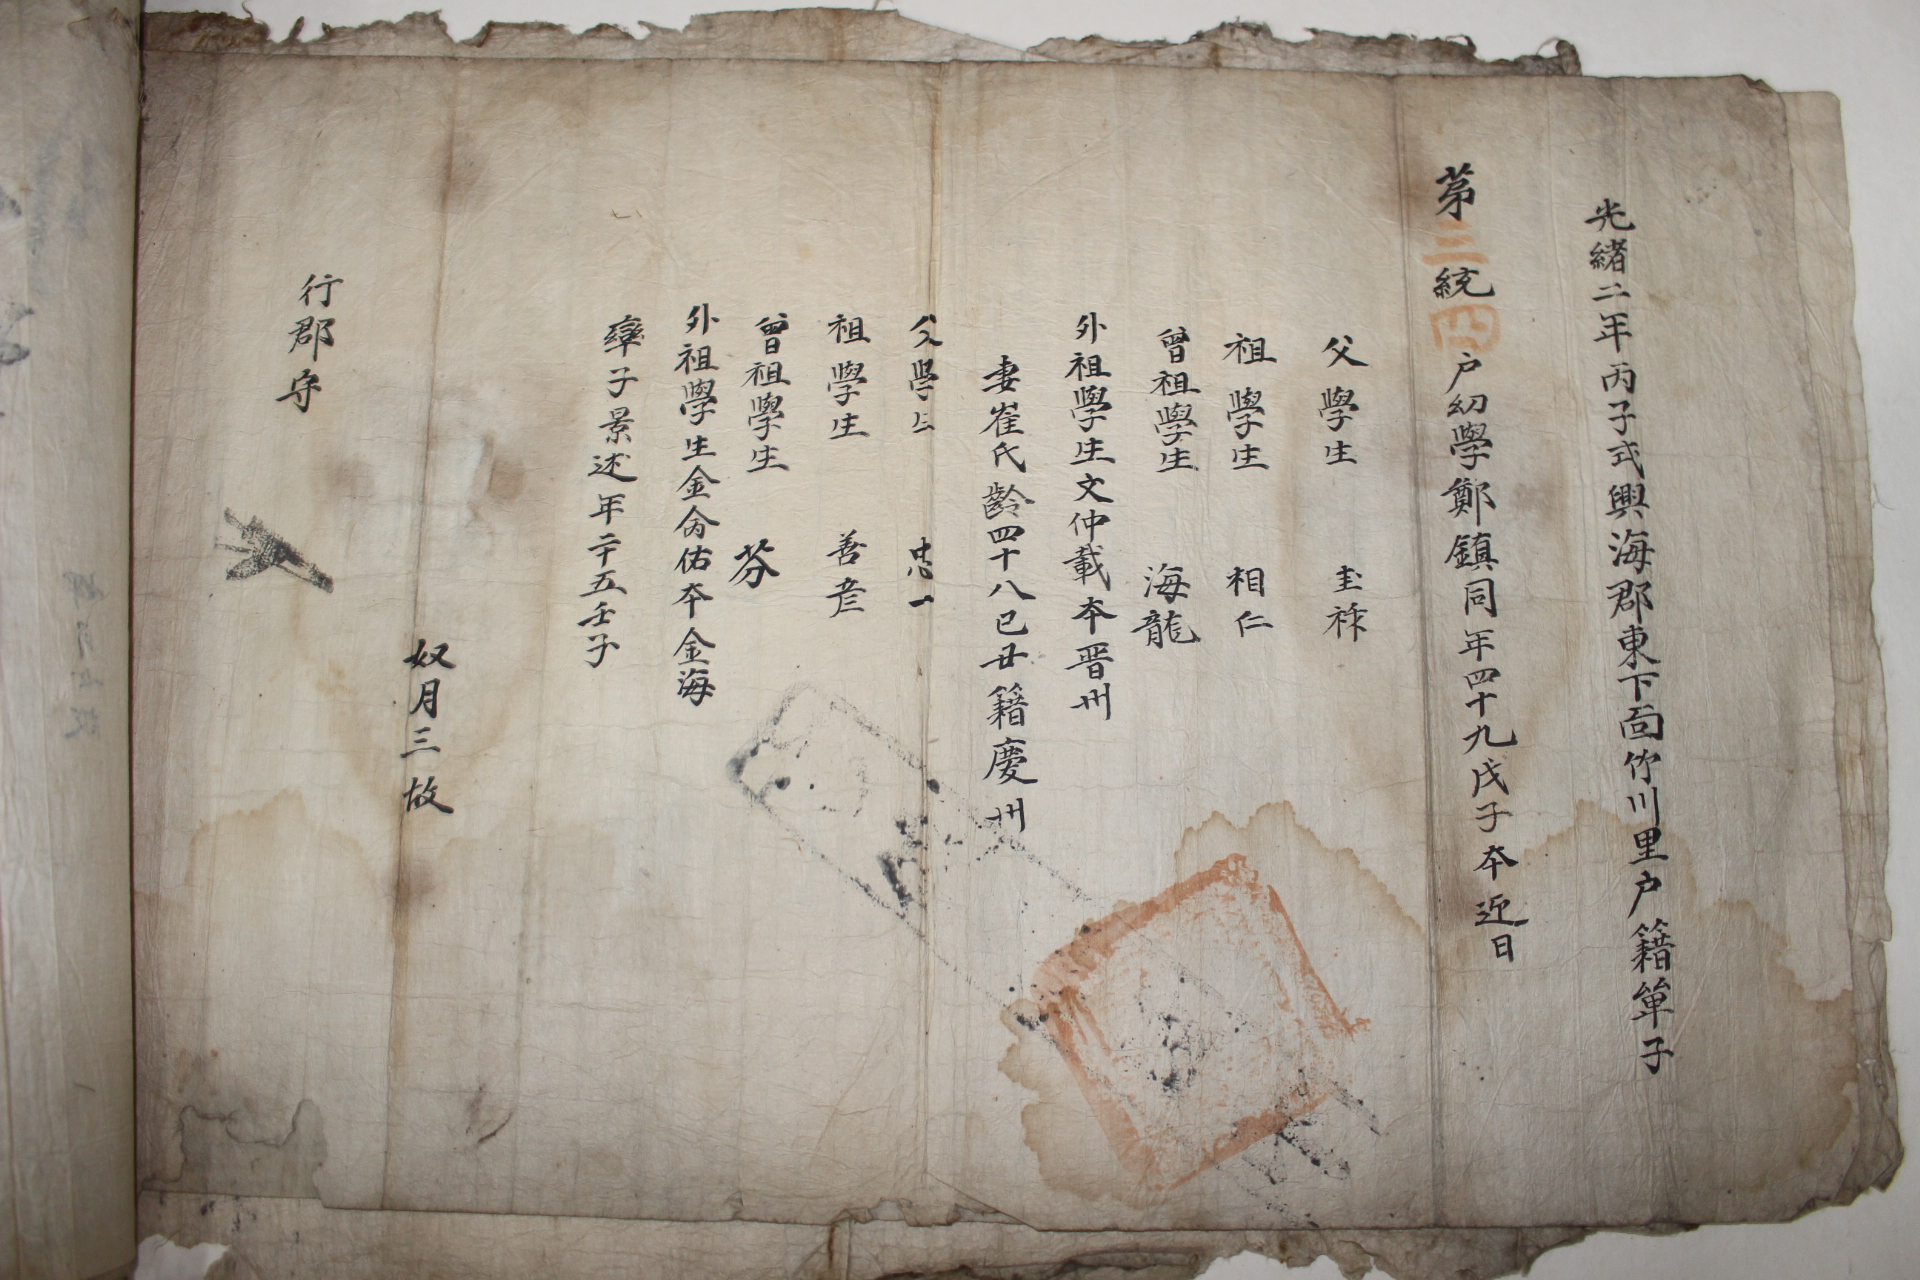 光緒二年丙子式興海郡東下面竹川里户籍單子
第三統四户幼學鄭鎮同年四十九戊子本近日
父學生 圭祿
祖學生 相仁
曾祖學生 海龍
外祖學生文仲載本晋州
妻崔氏齡四十八己丑籍慶州
父學生 忠一
祖學生 善彦
曾祖學生 芬
外祖學生金 佑本金海
率子景述年二十五壬子
奴月三故
行郡守